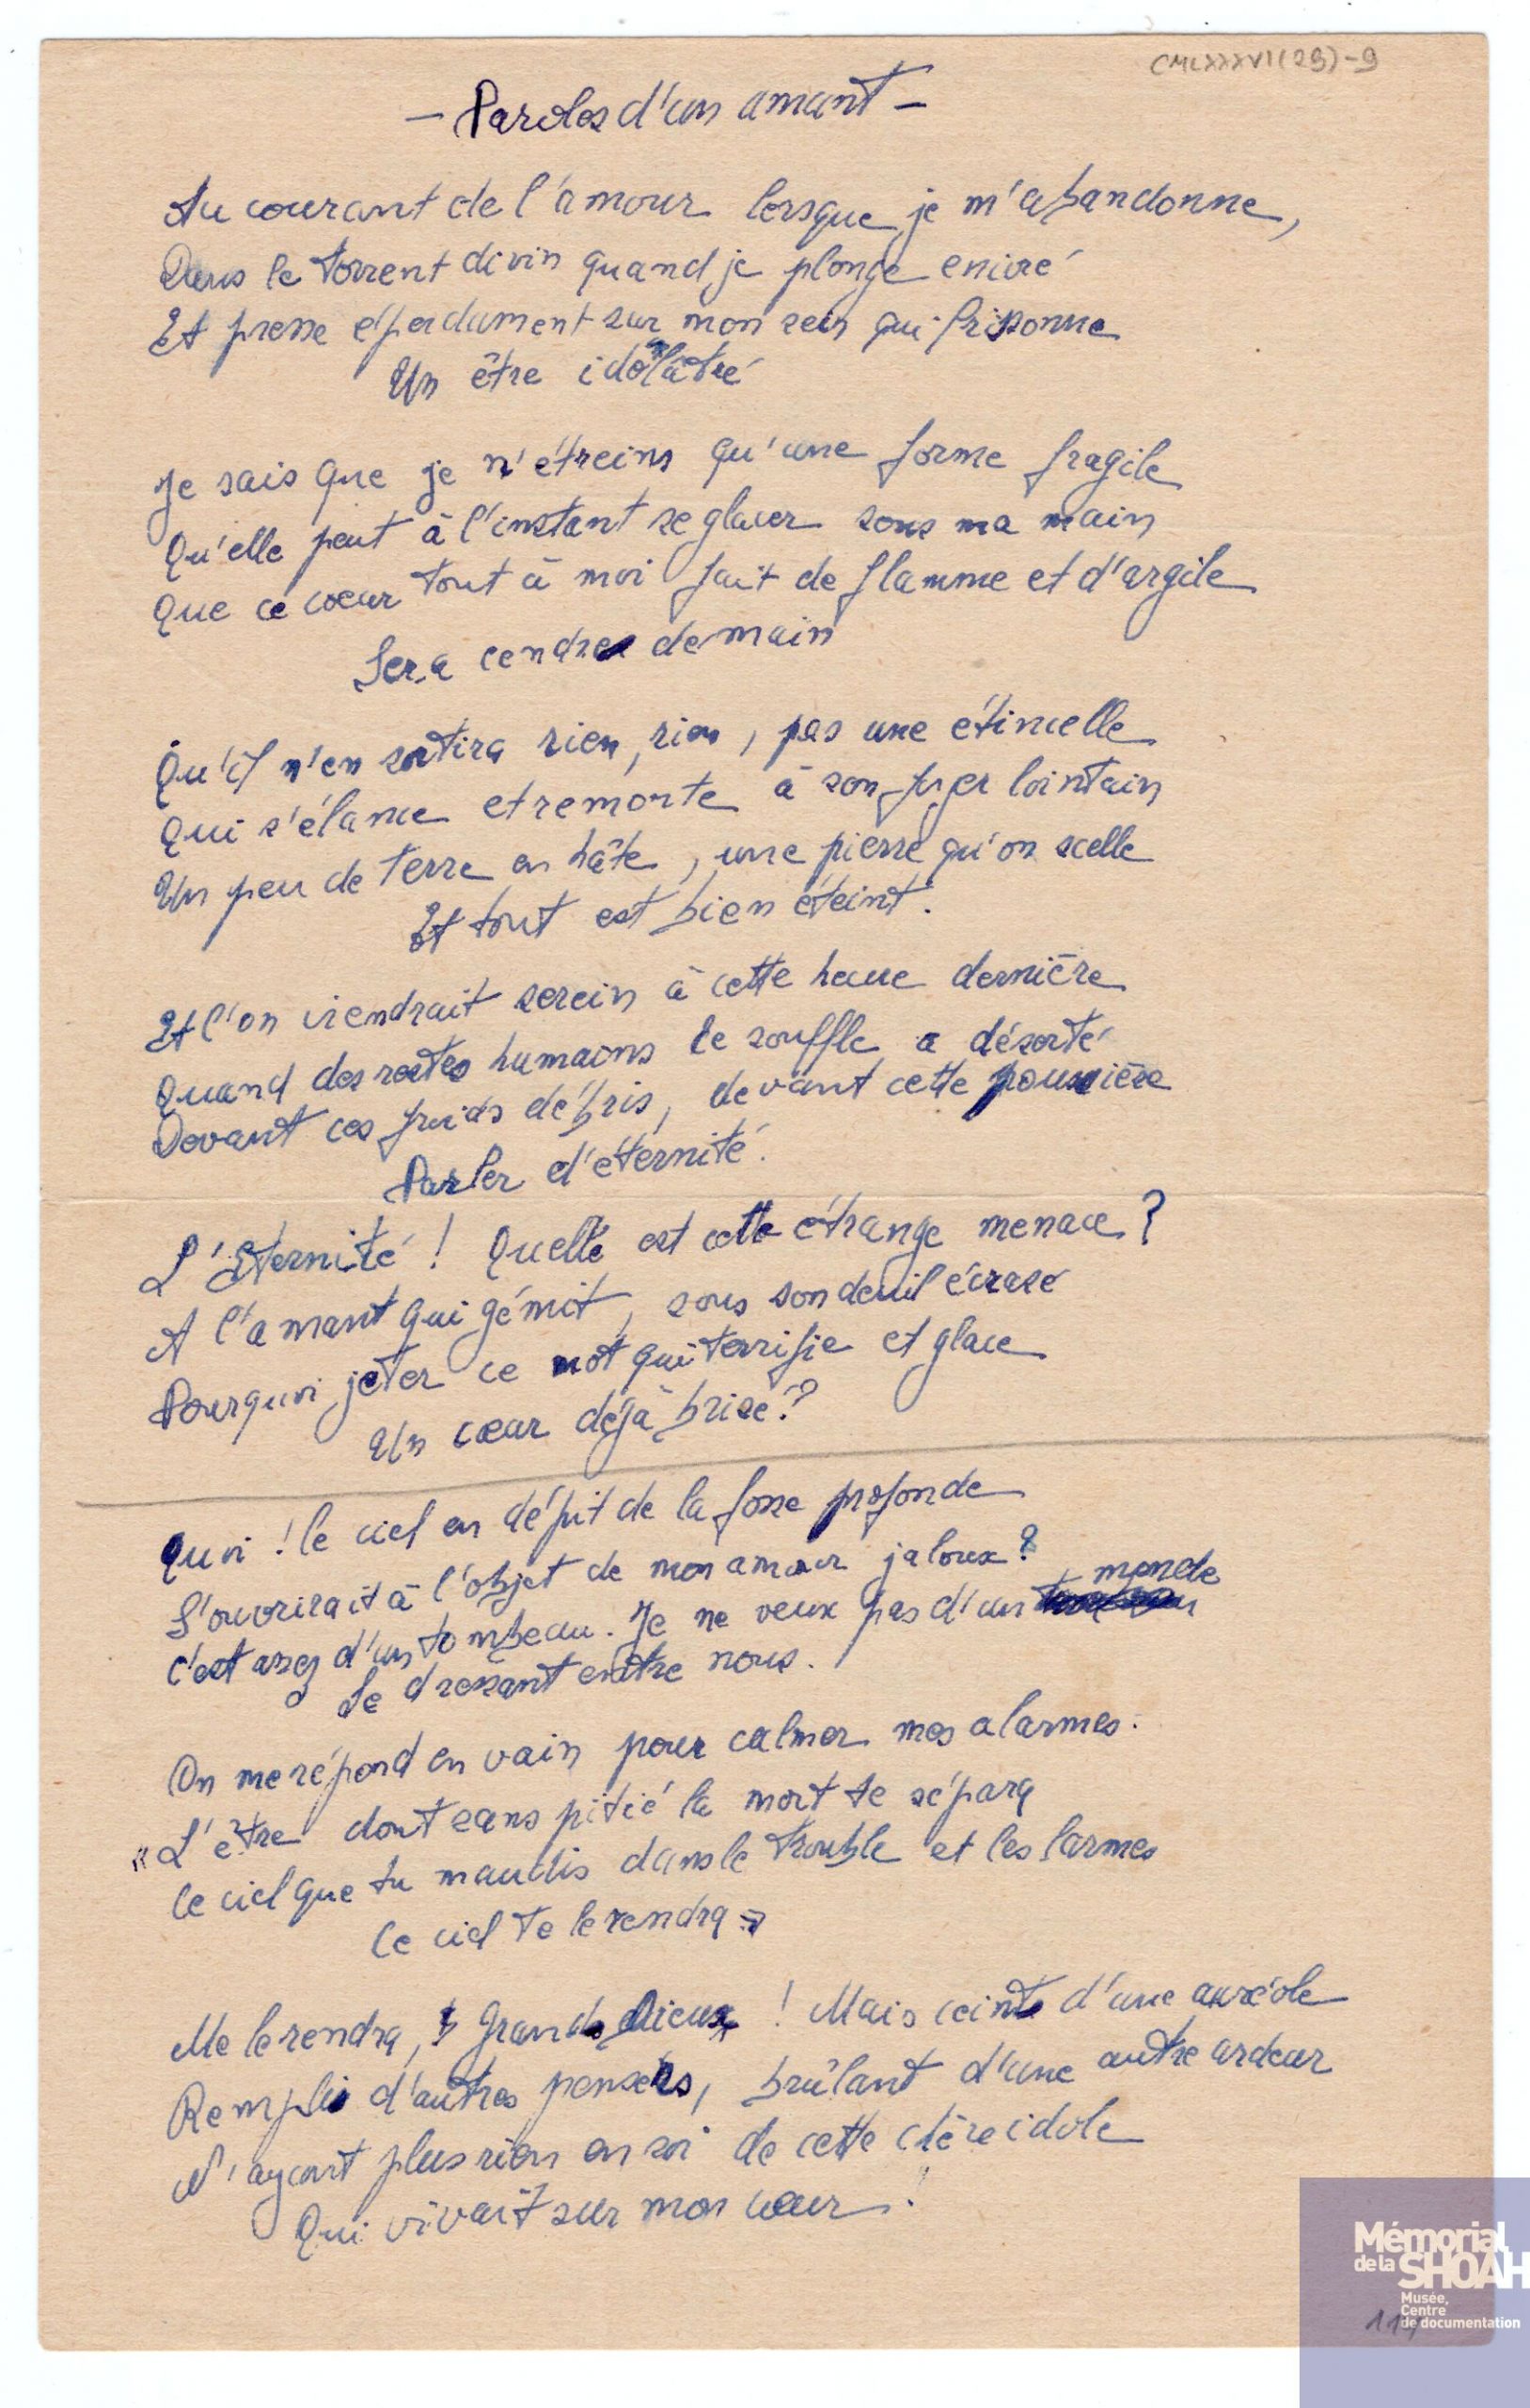 CMLXXXVI(29)-9
- Paroles d'un amant -
Au courant de l'amour lorsque je m'abandonne,
Dans le torrent divin quand je plonge enivré
Et presse éperdument sur mon sein qui frissonne
Un être idolâtré
Je sais que je n'étreins qu'une forme fragile
Qu'elle peut à l'instant se glacer sous ma main
Que ce coeur tout à moi fait de flamme et d'argile
Sera cendre demain
Qu'il n'en sortira rien, rien, pas une étincelle
Qui s'élance et remonte à son foyer lointain
Un peu de terre en hâte, une pierre qu'on scelle
Et tout est bien éteint.
Et l'on viendrait serein à cette heure dernière
Quand des restes humains le souffle a déserté
Devant ces froids débris, devant cette poussière
Parler d'éternité.
L'Eternité ! Quelle est cette étrange menace ?
A l'amant qui gémit, sous son deuil écrasé
Pourquoi jeter ce mot qui terrifie et glace
Un cœur déjà brisé ?
Quoi ! le ciel en dépit de la fosse profonde
S'ouvrirait à l'objet de mon amour jaloux ?
C'est assez d'un tombeau. Je ne veux pas d'un monde
Se dressant entre nous.
On me répond en vain pour calmer mes alarmes.
"L'être dont sans pitié la mort te sépara
Ce ciel que tu maudis dans le trouble et les larmes
Ce ciel te le rendra"
Me le rendra, Grands Dieux ! Mais ceint d'une auréole
Rempli d'autres pensers, brûlant d'une autre ardeur
N'ayant plus rien en soi de cette chère idole
Qui vivait sur mon cœur !
Mémorial
de la SHOAH
Musée,
Centre
de documentation